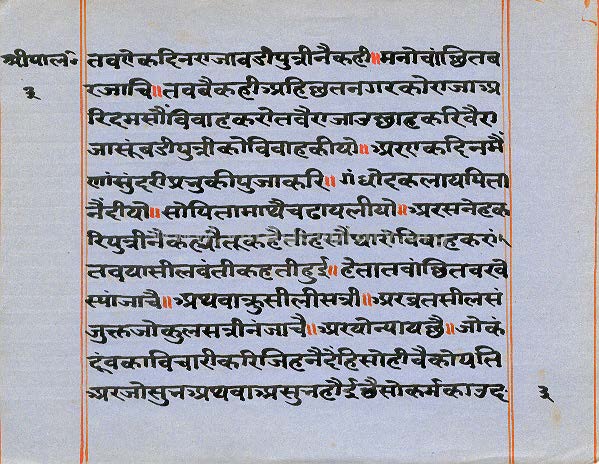 श्रीपाल॰ तवऐकदिनराजावडीपुत्रीनैकही॥मनोवांछितब
३ रजाचि॥तवबैकहीअहिछतनगरकोराजाअ
रिदमसौंविवाहकरोतवैराजाउछाहकरिवैरा
जासूंबडीपुत्रीकोविवाहकीयो॥अरएकदिनमैं
णांसुंदरीप्रभुकीपुजाकरि॥गंधोदकलायपिता
नैंदीयो॥सोपितामाथैचढायलीयो॥अरसनेहक
रिपुत्रीनैकह्यौतूकहैतीहसौंथारोविवाहकरां
तवयासीलवंतीकहतीहुई॥हेतातवांछितवरवे
स्यांजाचै॥अथवाकुसीलीसत्री॥अरव्रतसीलसं
जुक्तजोकुलसत्रीनंजाचै॥अरयोन्यायछै॥जोकं
दंवकाविचारीकरिजिहनैदेंहिसोहीवैकोपति
अरजोसुभअथवाअसुभहौईछैसोकर्मकाउद॰ ३